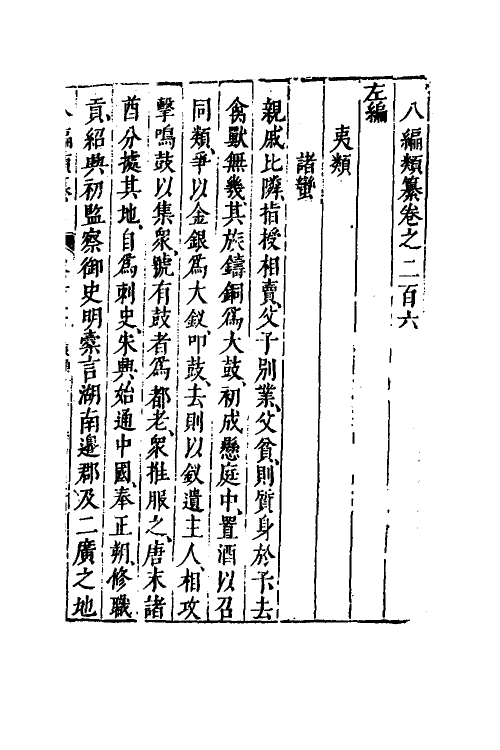 八編類纂卷之二百六
左編
夷類
諸蠻
親戚比隣指授相賣父子別業父貧則質身於子去
禽獸無幾其族鑄銅為大鼓初成懸庭中置酒以召
同類爭以金銀為大釵叩鼓去則以釵遺主人相攻
擊鳴鼓以集衆號有鼓者為都老衆推服之唐末諸
酋分據其地自為刺史宋興始通中國奉正朔修職
貢紹興初監察御史明橐言湖南邊郡及二廣之地
八編類纂